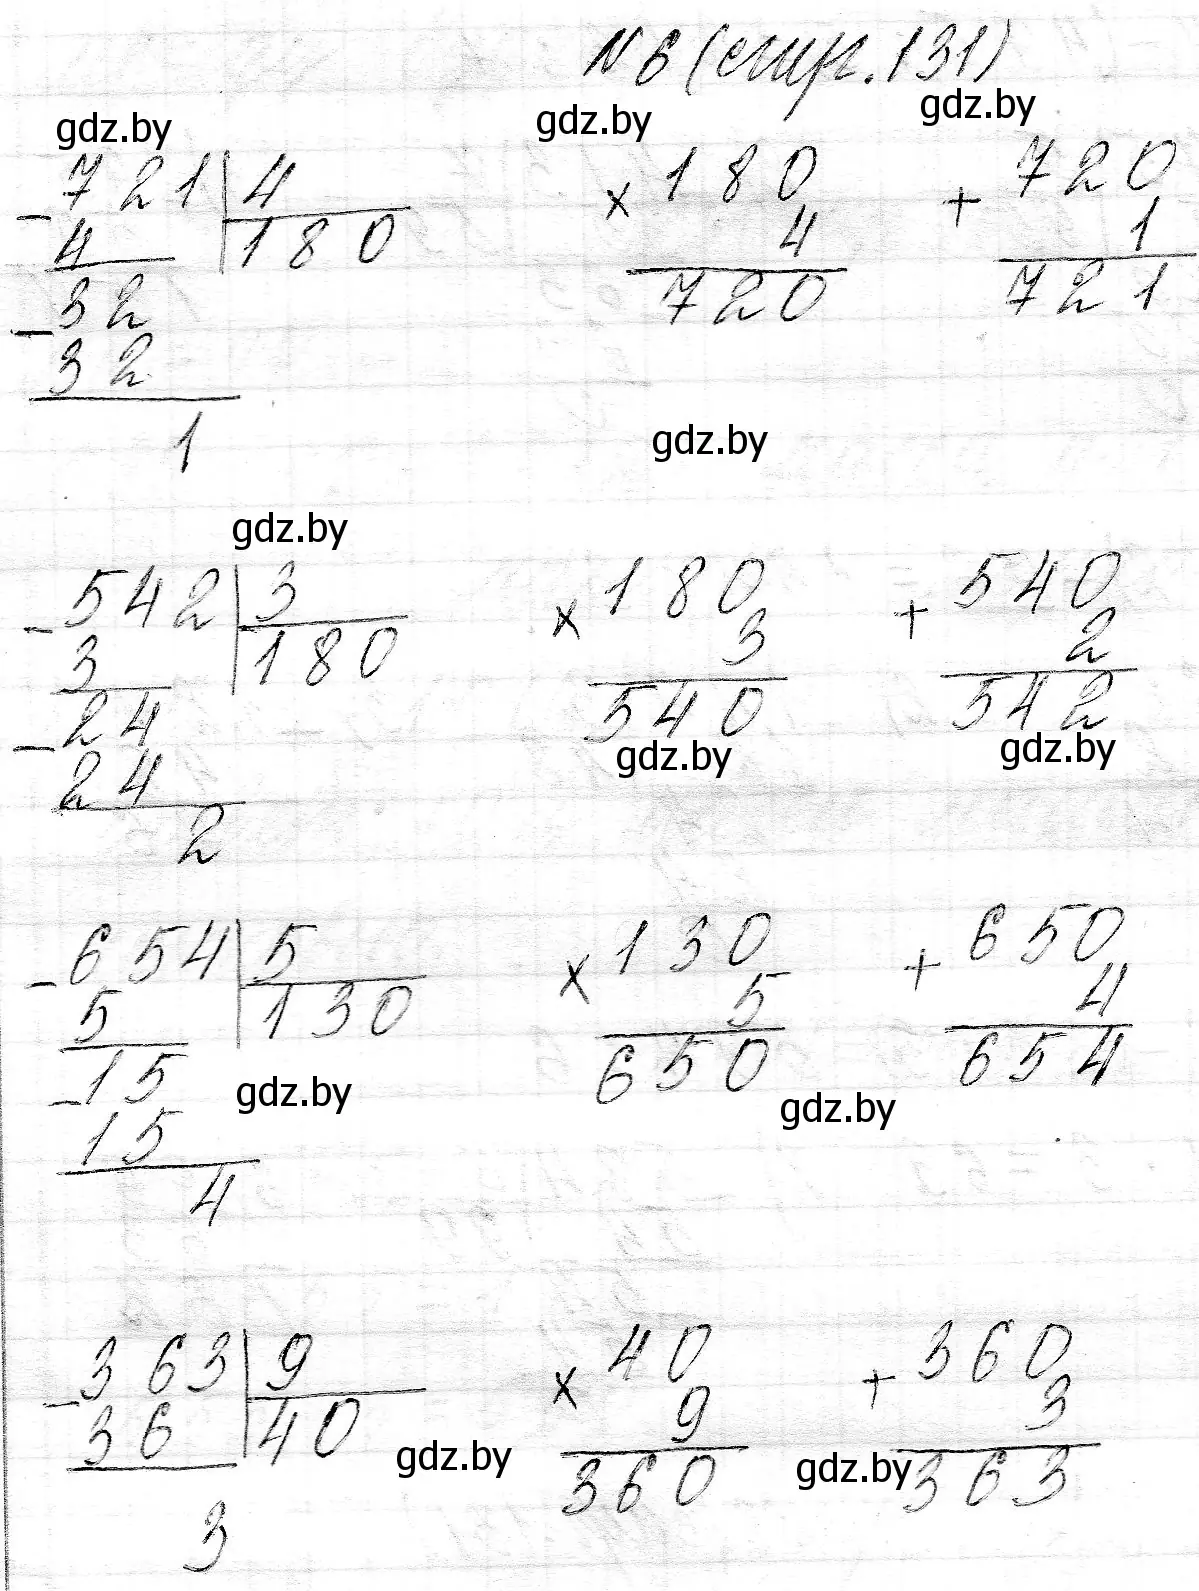 №6 (стр. 131)
gdz.by gdz.by gdz.by
721 4 180 720
- 4 180 × 4 + 1
32 720 721
- 32
1
gdz.by
gdz.by
542 3 180 540
- 3 180 × 3 + 2
24 540 542
- 24 gdz.by gdz.by
2
654 5 130 650
- 5 130 × 5 + 4
15 650 654
- 15 gdz.by gdz.by
4
363 9 40 360
- 36 40 × 9 + 3
gdz.by 360 gdz.by 363
3